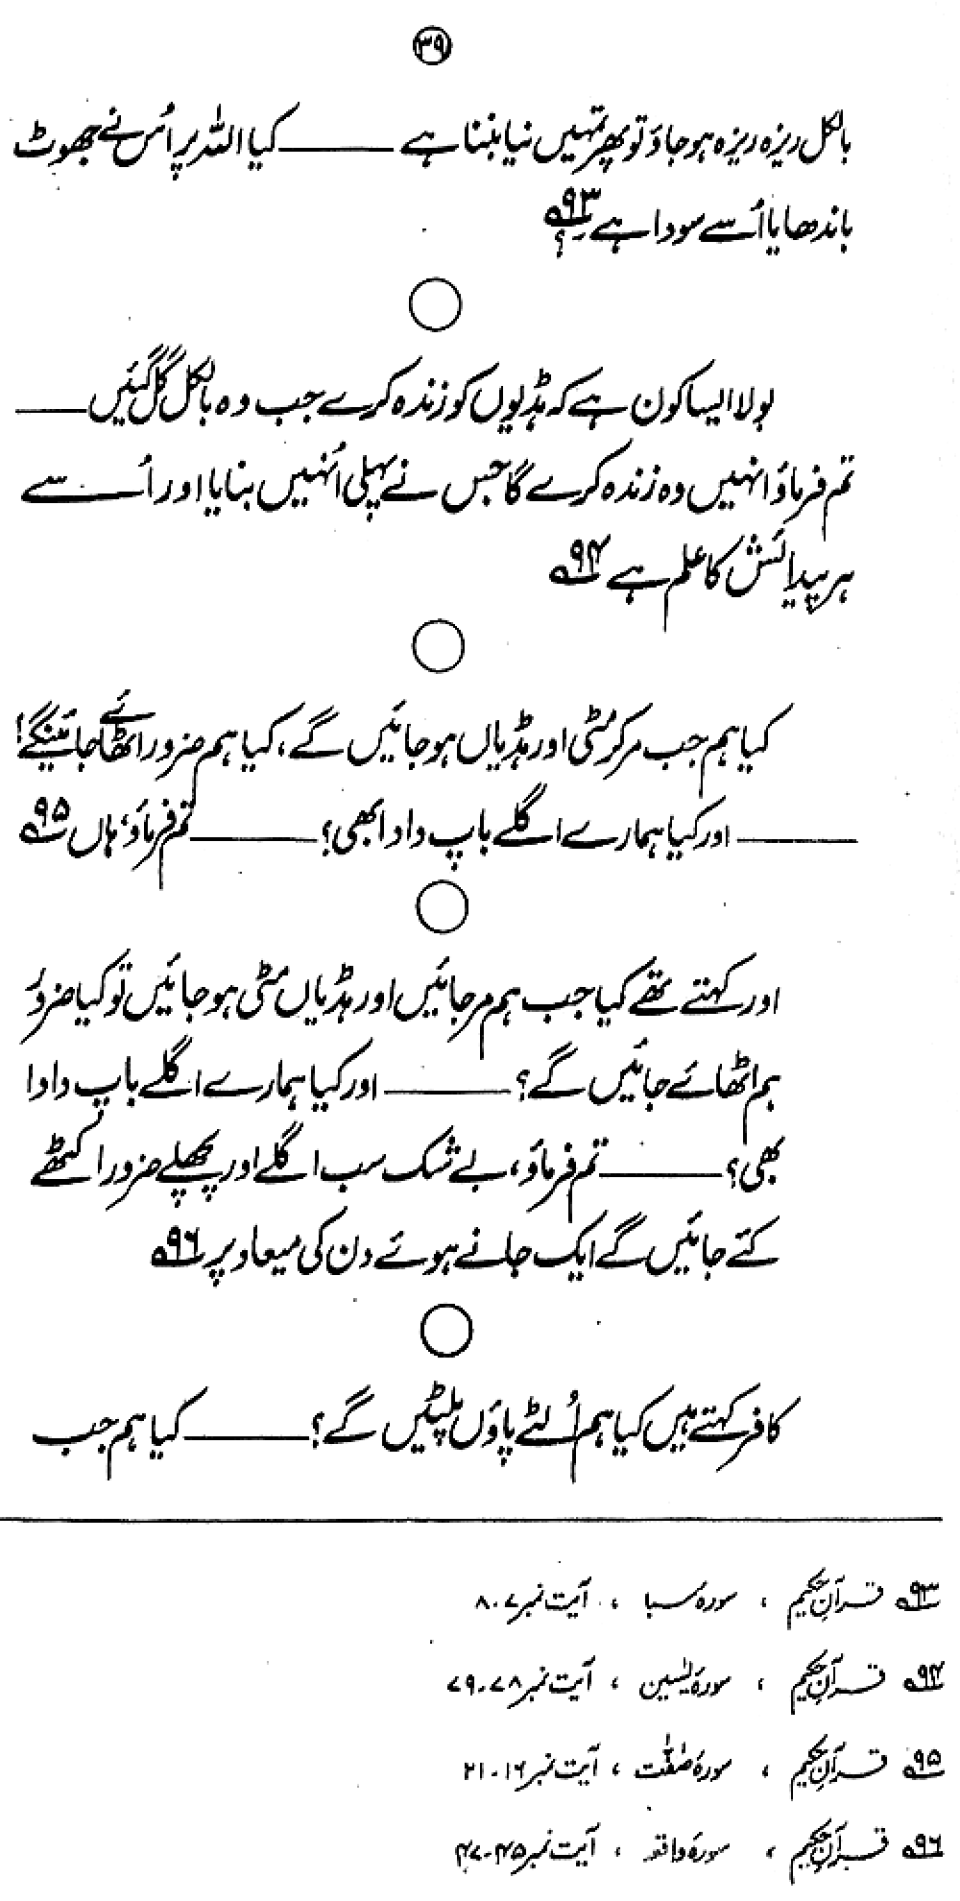 ۳۹
بالکل ریزہ ریزہ ہو جاؤ تو پھر تمہیں نیا بننا ہے ــــــ کیا اللہ پر اُس نے جھوٹ
باندھا یا اُسے سودا ہے؟ ۹۳؎
بولا ایسا کون ہے کہ ہڈیوں کو زندہ کرے جب وہ بالکل گل گئیں ــــــ
تم فرماؤ انہیں وہ زندہ کرے گا جس نے پہلی اُنہیں بنایا اور اُسے
ہر پیدائش کا علم ہے ۹۴؎
کیا ہم جب مر کر مٹی اور ہڈیاں ہو جائیں گے، کیا ہم ضرور اٹھائے جائینگے!
ــــــ اور کیا ہمارے اگلے باپ دادا بھی؟ ــــــ تم فرماؤ، ہاں ۹۵؎
اور کہتے تھے کیا جب ہم مر جائیں اور ہڈیاں مٹی ہو جائیں تو کیا ضرور
ہم اٹھائے جائیں گے؟ ــــــ اور کیا ہمارے اگلے باپ دادا
بھی؟ ــــــ تم فرماؤ، بے شک سب اگلے اور پچھلے ضرور اکٹھے
کئے جائیں گے ایک جانے ہوئے دن کی میعاد پر ۹۶؎
کافر کہتے ہیں کیا ہم اُلٹے پاؤں پلٹیں گے؟ ــــــ کیا ہم جب
۹۳؎ قرآن حکیم ، سورہ سبا ، آیت نمبر ۷۔۸
۹۴؎ قرآن حکیم ، سورۂ یٰسین ، آیت نمبر ۷۸۔۷۹
۹۵؎ قرآن حکیم ، سورۂ صٰفّٰت ، آیت نمبر ۱۶۔۲۱
۹۶؎ قرآن حکیم ، سورۂ واقعہ ، آیت نمبر ۴۵۔۴۷